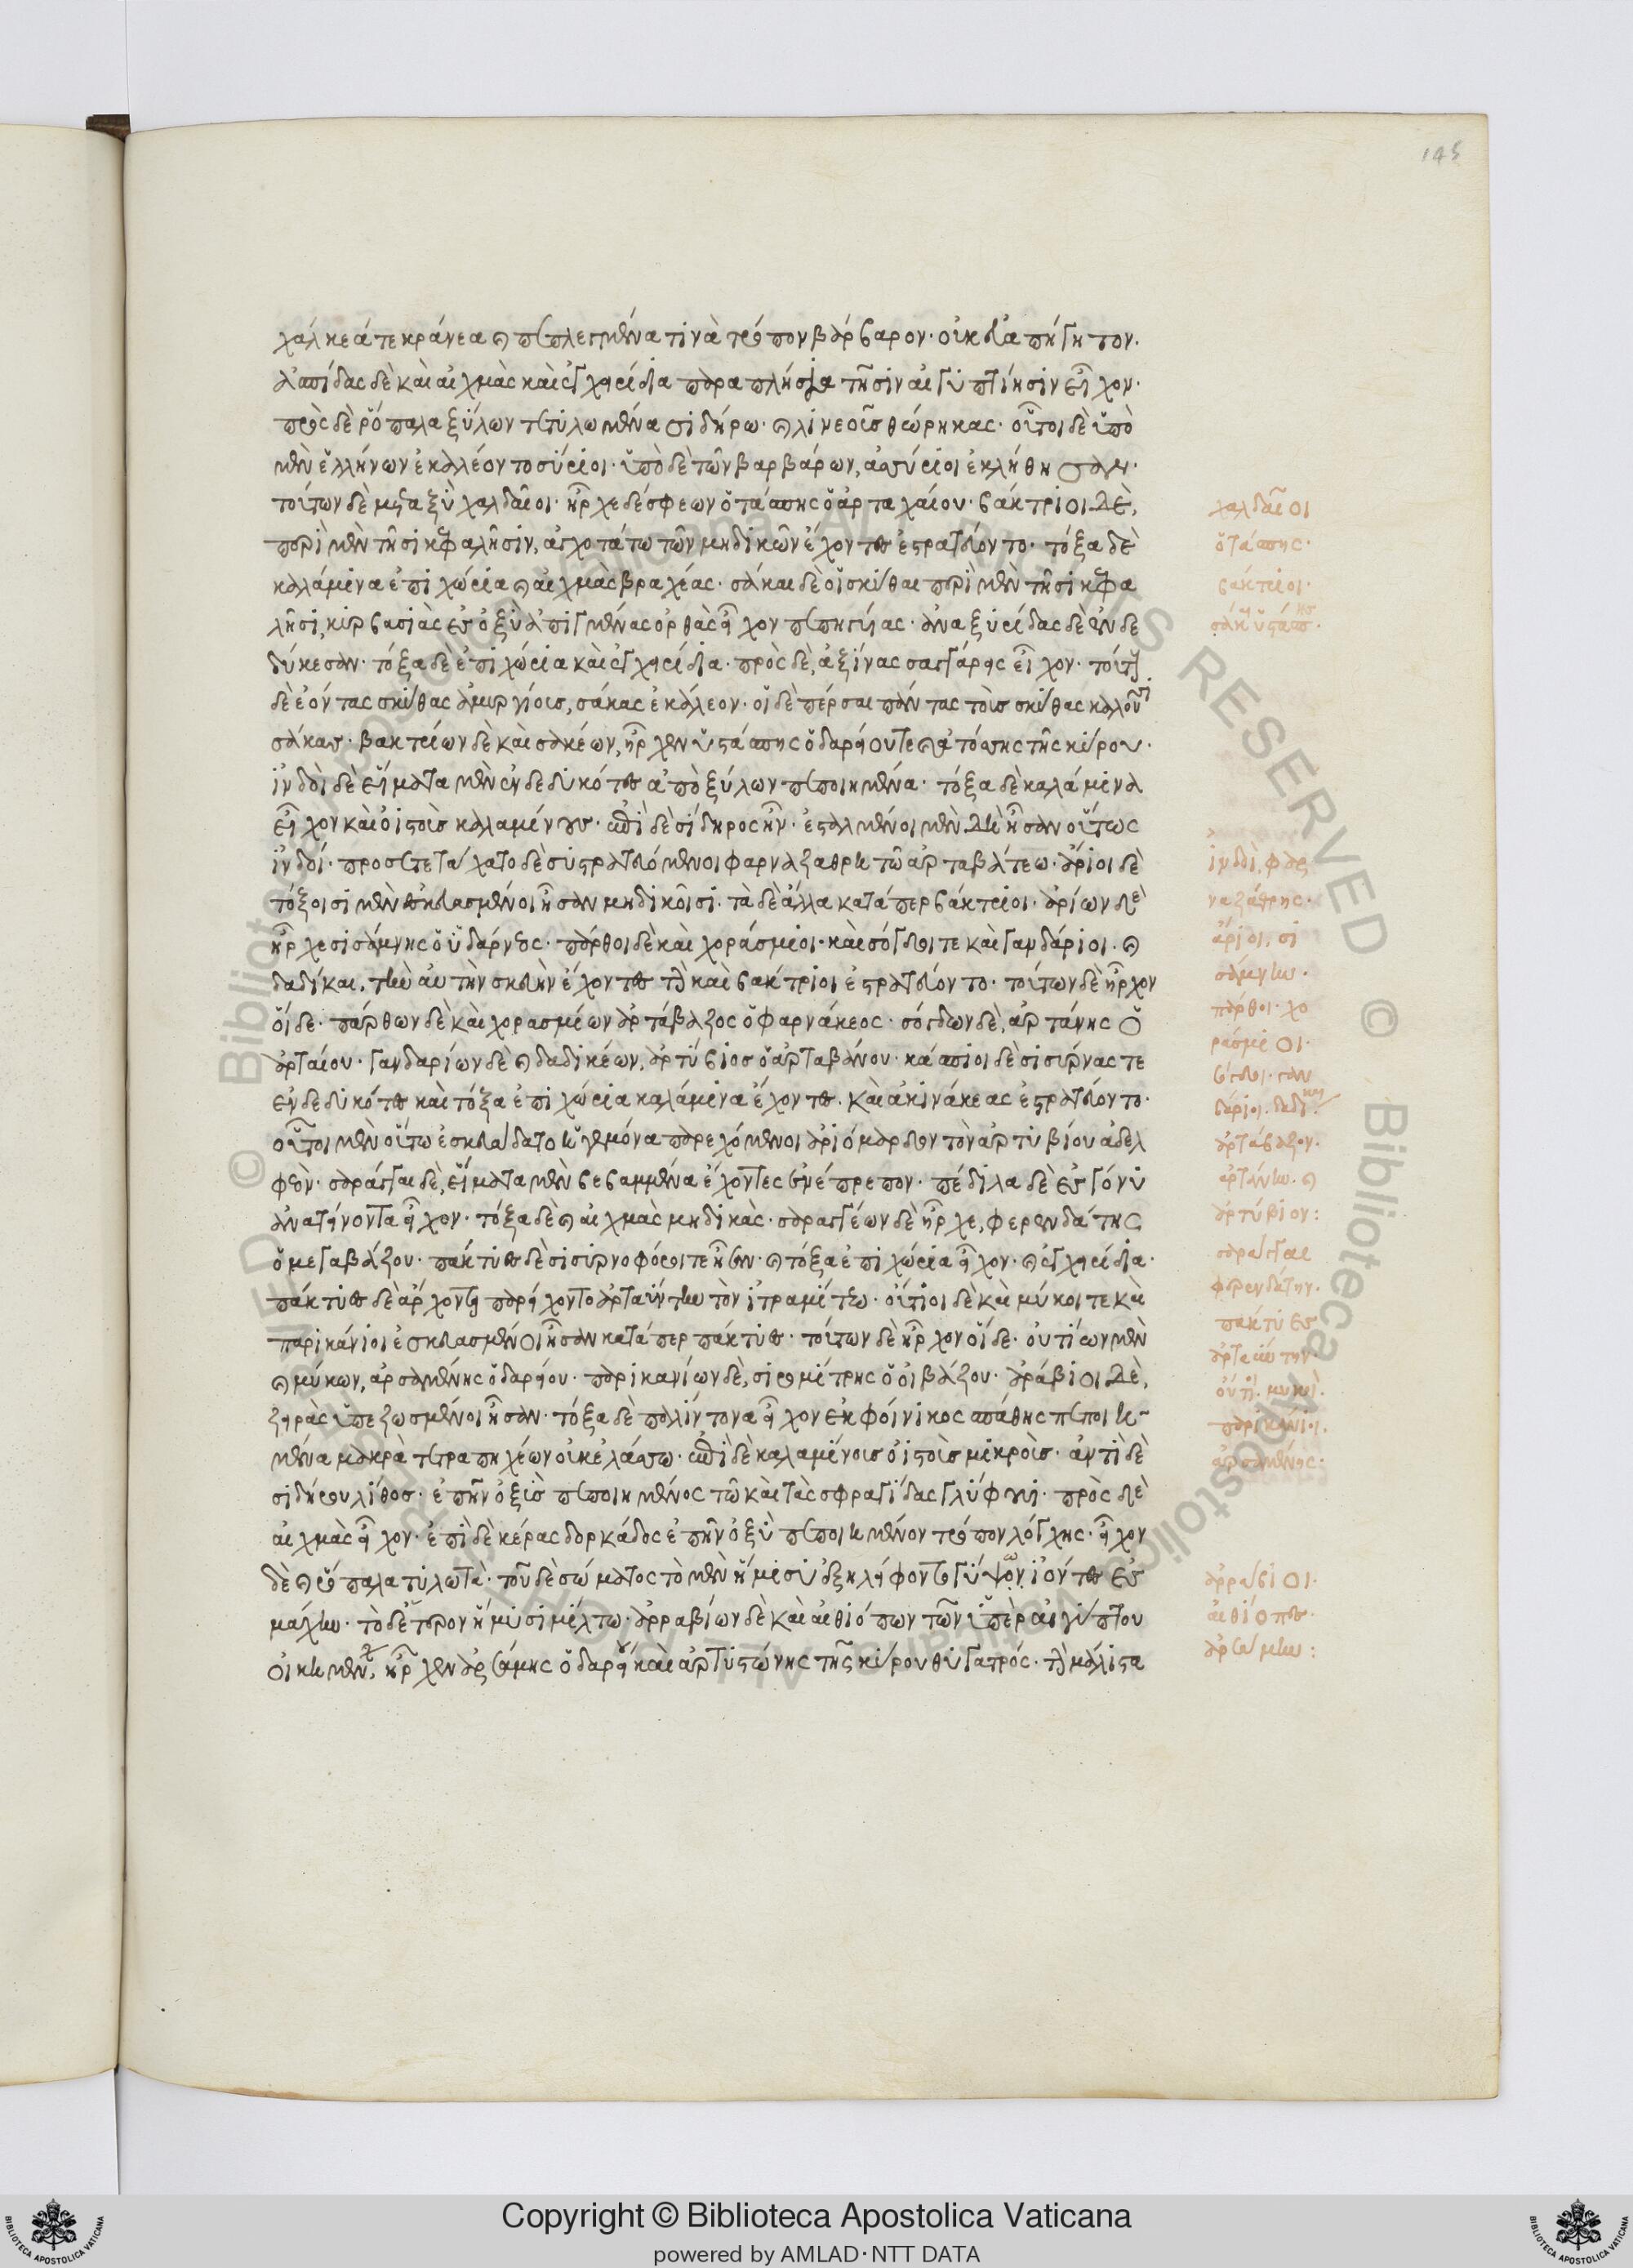 145
χάλκεά τε κράνεα καὶ πεπλεγμένα τινὰ τρόπον βάρβαρον· οὐκ εὐαπήγητον·
ἀσπίδας δὲ καὶ αἰχμὰς καὶ ἐγχειρίδια παραπλήσια τῆσιν αἰγυπτίησιν εἶχον·
πρὸς δὲ ῥόπαλα ξύλων τετυλωμένα σιδήρω· καὶ λινέους θώρηκας· οὗτοι δὲ ὑπὸ
μὲν ἑλλήνων ἐκαλέοντο σύριοι· ὑπὸ δὲ τῶν βαρβάρων, ἀσύριοι ἐκλήθησαν·
τούτων δὲ μεταξὺ χαλδαῖοι· ἦρχε δέ σφεων ὀτάσπης ὁ ἀρταχαίου· βάκτριοι δὲ,
περὶ μὲν τῆσι κεφαλῆσιν, ἀγχοτάτω τῶν μηδικῶν ἔχοντες ἐστρατεύοντο· τόξα δὲ
καλάμινα ἐπιχώρια καὶ αἰχμὰς βραχέας· σάκαι δὲ οἱ σκύθαι περὶ μὲν τῆσι κεφα
λῆσι, κυρβασίας ἐς ὀξὺ ἀπιγμένας ὀρθὰς εἶχον πεπηγυίας· ἀναξυρίδας δὲ ἐνδε
δύκεσαν· τόξα δὲ ἐπιχώρια καὶ ἐγχειρίδια· πρὸς δὲ, ἀξίνας σαγάρεις εἶχον· τούτους
δὲ ἐόντας σκύθας ἀμυργίους, σάκας ἐκάλεον· οἱ δὲ πέρσαι πάντας τοὺς σκύθας καλοῦσι
σάκας· βακτρίων δὲ καὶ σακέων, ἦρχεν ὑστάσπης ὁ δαρείου τε καὶ ἀτόσσης τῆς κύρου·
ἰνδοὶ δὲ εἵματα μὲν ἐνδεδυκότες ἀπὸ ξύλων πεποιημένα· τόξα δὲ καλάμινα
εἶχον καὶ ὀϊστοὺς καλαμίνους· ἐπὶ δὲ σίδηρος ἦν· ἐσταλμένοι μὲν δὴ ἦσαν οὕτως
ἰνδοί· προσετετάχατο δὲ συστρατευόμενοι φαρναζάθρη τῶ ἀρταβάτεω· ἄριοι δὲ
τόξοισι μὲν ἐσκευασμένοι ἦσαν μηδικοῖσι· τὰ δὲ ἄλλα κατάπερ βάκτριοι· ἀρίων δὲ
ἦρχε σισάμνης ὁ ὑδάρνεος· πάρθοι δὲ καὶ χοράσμιοι· καὶ σόγδοι τε καὶ γανδάριοι· καὶ
δαδίκαι, τὴν αὐτὴν σκευὴν ἔχοντες τὴν καὶ βάκτριοι ἐστρατεύοντο· τούτων δὲ ἦρχον
οἵδε· πάρθων δὲ καὶ χορασμίων ἀρτάβαζος ὁ φαρνάκεος· σόγδων δὲ, ἀρτάνης ὁ
ἀρταίου· γανδαρίων δὲ καὶ δαδικέων, ἀρτύβιος ὁ ἀρταβάνου· κάσπιοι δὲ σισύρνας τε
ἐνδεδυκότες καὶ τόξα ἐπιχώρια καλάμινα ἔχοντες· καὶ ἀκινάκεας ἐστρατεύοντο·
οὗτοι μὲν οὕτω ἐσκευάδατο ἡγεμόνα παρεχόμενοι ἀριόμαρδον τὸν ἀρτυβίου ἀδελ
φεὸν· σαράγγαι δὲ, εἵματα μὲν βεβαμμένα ἔχοντες ἐνέπρεπον· πέδιλα δὲ ἐς γόνυ
ἀνατείνοντα εἶχον· τόξα δὲ καὶ αἰχμὰς μηδικὰς· σαραγγέων δὲ ἦρχε, φερενδάτης
ὁ μεγαβάζου· πάκτυες δὲ σισυρνοφόροι τε ἦσαν· καὶ τόξα ἐπιχώρια εἶχον· καὶ ἐγχειρίδια·
πάκτυες δὲ ἄρχοντα παρείχοντο ἀρταύντην τὸν ἰτραμίτεω· οὔτιοι δὲ καὶ μύκοι τε καὶ
παρικάνιοι ἐσκευασμένοι ἦσαν κατάπερ πάκτυες· τούτων δὲ ἦρχον οἵδε· οὐτίων μὲν
καὶ μύκων, ἀρσαμένης ὁ δαρείου· παρικανίων δὲ, σιρομίτρης ὁ οἰβάζου· ἀράβιοι δὲ,
ζειρὰς ὑπεζωσμένοι ἦσαν· τόξα δὲ παλίντονα εἶχον ἐκ φοίνικος σπάθης πεποιη-
μένα μακρὰ τετραπηχέων οὐκ ἐλάσσω· ἐπὶ δὲ καλαμίνους ὀϊστοὺς μικροὺς· ἀντὶ δὲ
σιδήρου λίθος· ἐπῆν ὀξὺς πεποιημένος τῶ καὶ τὰς σφραγίδας γλύφουσι· πρὸς δὲ
αἰχμὰς εἶχον· ἐπὶ δὲ κέρας δορκάδος ἐπῆν ὀξὺ πεποιημένον τρόπον λόγχης· εἶχον
δὲ καὶ ῥόπαλα τυλωτὰ· τοῦ δὲ σώματος τὸ μὲν ἥμισυ ἐξηλείφοντο γύψον ἰόντες ἐς
μάχην· τὸ δ' ἕτερον ἥμισυ μίλτω· ἀρραβίων δὲ καὶ αἰθιόπων τῶν ὑπὲρ αἰγύπτου
οἰκημένων, ἦρχεν ἀρσάμης ὁ δαρείου καὶ ἀρτυστώνης τῆς κύρου θυγατρός· τὴν μάλιστα
χαλδαῖοι
ὀτάσπης·
βάκτριοι·
ἰνδοὶ, φαρ
ναζάθρης·
ἄριοι, σι
σάμνην·
πάρθοι· χο
ράσμιοι·
ἀρτάβαζον·
ἀρτάνην· καὶ
ἀρτύβιον:
σαράγγαι
φερενδάτην·
πάκτυες
ἀρταύντην·
παρικάνιοι·
ἀρσαμένης·
ἀρράβιοι·
αἰθίοπες·
ἀρσάμην:
Copyright © Biblioteca Apostolica Vaticana
powered by AMLAD·NTT DATA